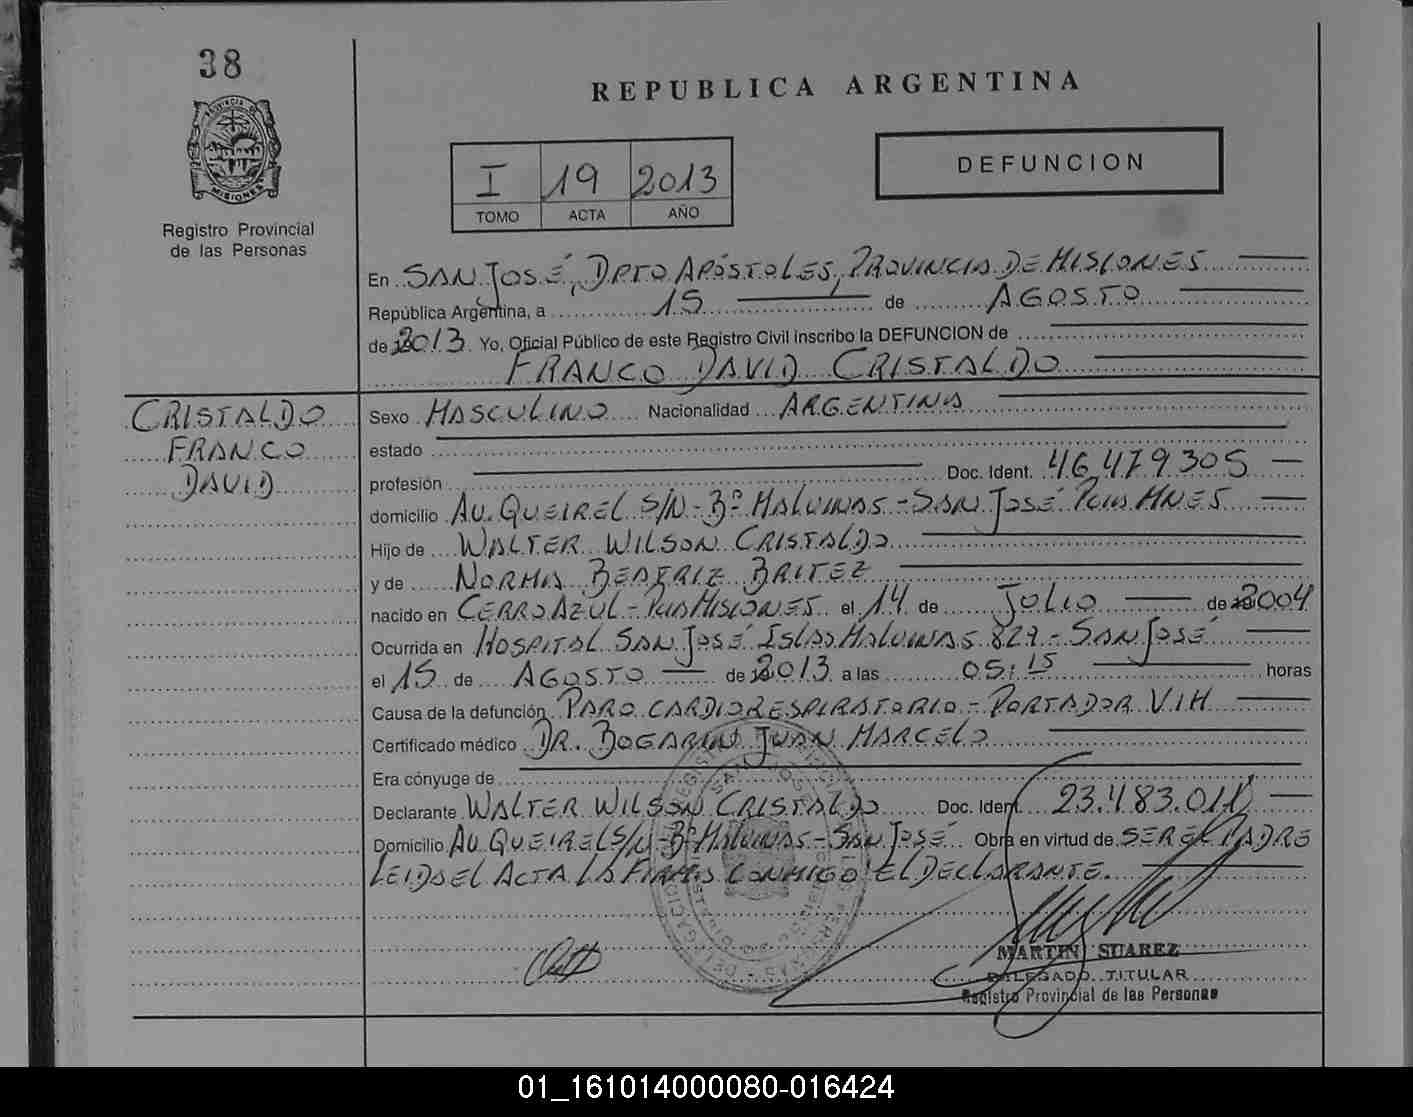 38
REPUBLICA ARGENTINA
PROVINCIA DE MISIONES
Registro Provincial
de las Personas
I 19 2013
TOMO ACTA AÑO
DEFUNCION
En SAN JOSÉ, DPTO APÓSTOLES, PROVINCIA DE MISIONES
República Argentina, a 15 de AGOSTO
de 2013. Yo, Oficial Público de este Registro Civil inscribo la DEFUNCION de
FRANCO DAVID CRISTALDO
CRISTALDO
FRANCO
DAVID
Sexo MASCULINO Nacionalidad ARGENTINA
estado
profesión Doc. Ident. 46.479.305
domicilio AV. QUEIREL S/N - Bº MALVINAS - SAN JOSÉ PCIA MNES
Hijo de WALTER WILSON CRISTALDO
y de NORMA BEATRIZ BRITEZ
nacido en CERRO AZUL - PCIA MISIONES el 14 de JULIO de 2004
Ocurrida en HOSPITAL SAN JOSÉ ISLAS MALVINAS 829 - SAN JOSÉ
el 15 de AGOSTO de 2013 a las 05:15 horas
Causa de la defunción PARO CARDIORESPIRATORIO - PORTADOR VIH
Certificado médico DR. BOGARIN JUAN MARCELO
Era cónyuge de
Declarante WALTER WILSON CRISTALDO Doc. Ident. 23.483.011
Domicilio AV QUEIREL S/N - Bº MALVINAS - SAN JOSÉ Obra en virtud de SER EL PADRE
LEIDA EL ACTA LA FIRMA CONMIGO EL DECLARANTE.
MARTIN SUAREZ
DELEGADO TITULAR
Registro Provincial de las Personas
01_161014000080-016424